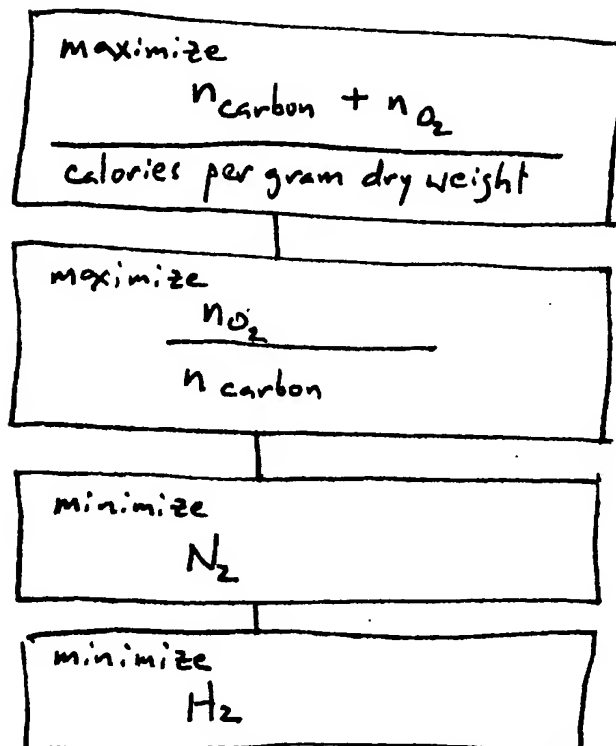 maximize
n carbon + n O2
calories per gram dry weight
maximize
n O2
n carbon
minimize
N2
minimize
H2